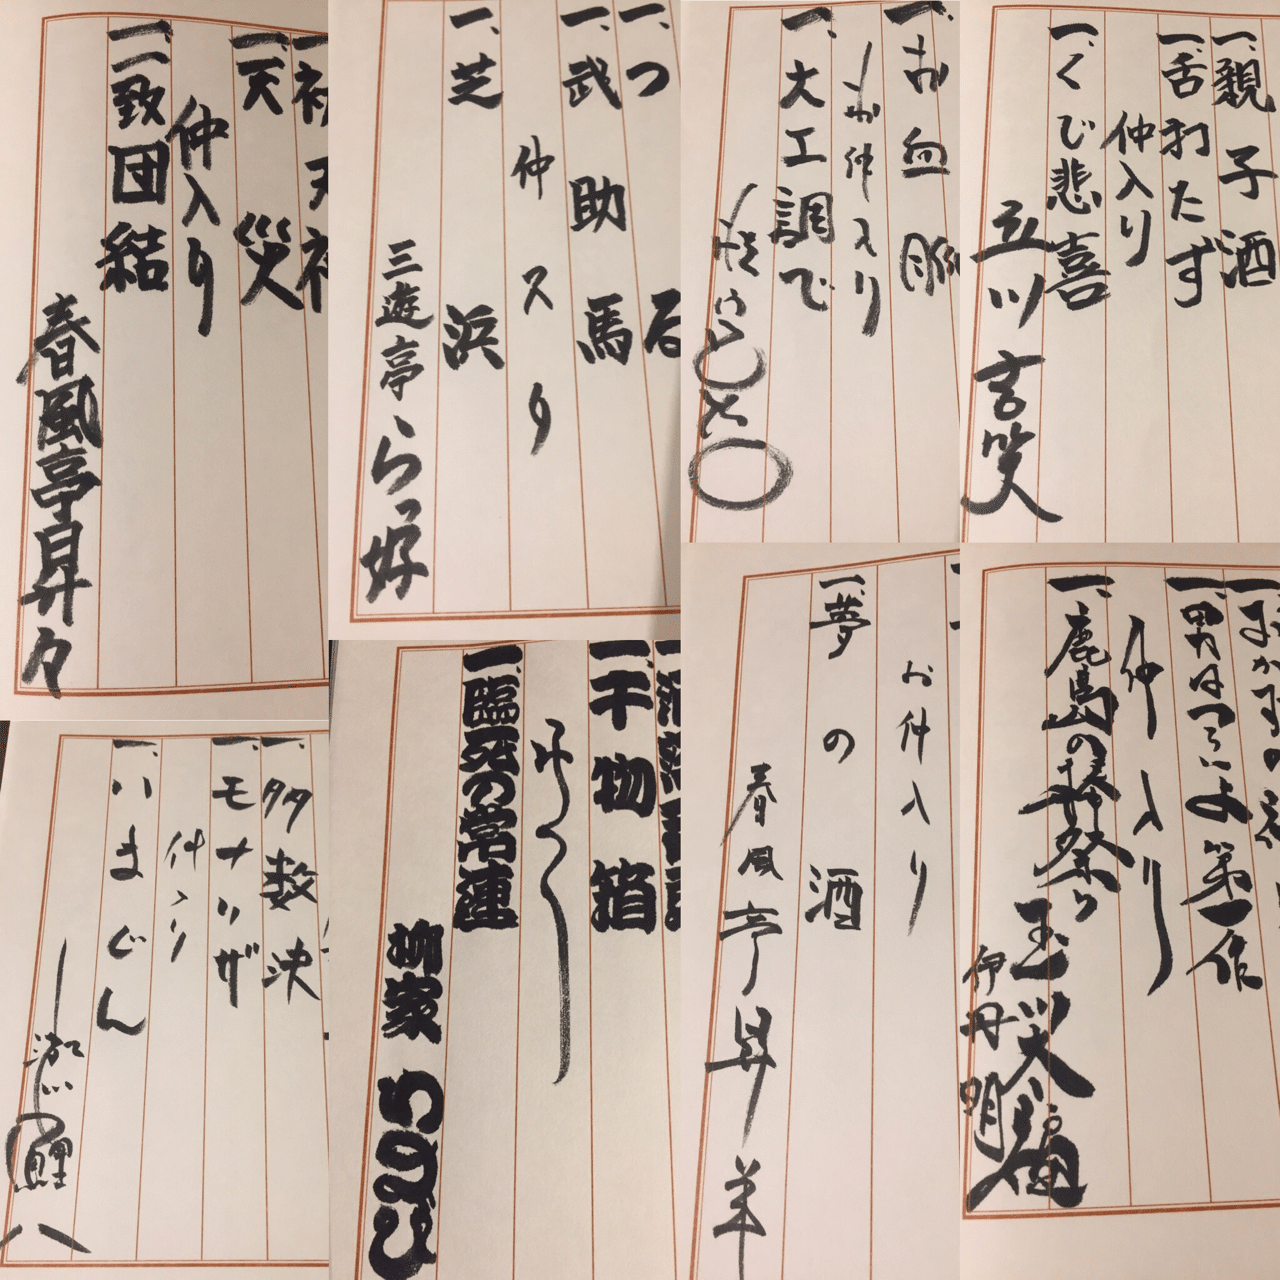 一、天災
仲入り
一、一致団結
春風亭昇々
一、武助馬
仲入り
一、芝浜
三遊亭らっ好
お血脈
お仲入り
一、大工調べ
一、親子酒
一、舌打たず
仲入り
一、くび悲喜
立川言笑
一、多数決
一、モナリザ
仲入り
一、いまじん
瀧川鯉八
一、干物箱
一、臨死の常連
柳家わさび
お仲入り
一、夢の酒
春風亭昇羊
一、男はつらいよ第一作
仲入り
一、鹿島の棒祭り
玉笑福
伊丹明